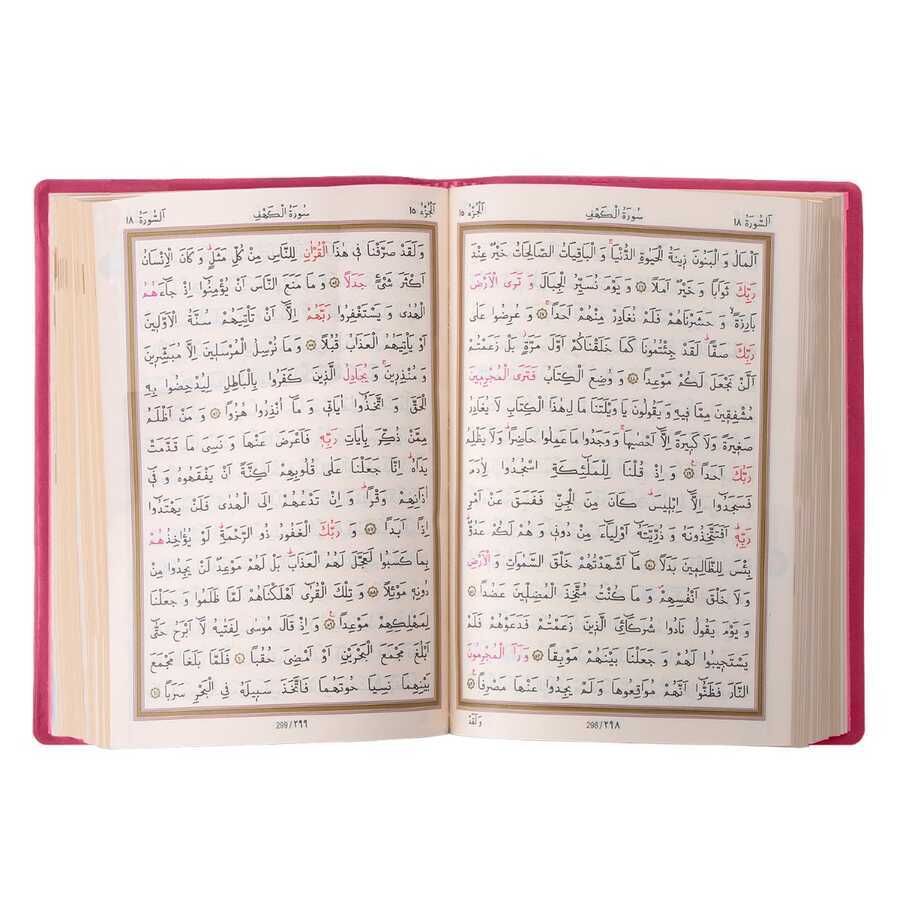 اَلسُّورَةُ ١٨ سُورَةُ الْكَهْفِ اَلْجُزْءُ ١٥
اَلْمَالُ وَ الْبَنُونَ زِينَةُ الْحَيٰوةِ الدُّنْيَاۚ وَ الْبَاقِيَاتُ الصَّالِحَاتُ خَيْرٌ عِنْدَ
رَبِّكَ ثَوَابًا وَ خَيْرٌ اَمَلًا ۝٤٦ وَ يَوْمَ نُسَيِّرُ الْجِبَالَ وَ تَرَى الْاَرْضَ
بَارِزَةًۙ وَ حَشَرْنَاهُمْ فَلَمْ نُغَادِرْ مِنْهُمْ اَحَدًاۚ ۝٤٧ وَ عُرِضُوا عَلٰى
رَبِّكَ صَفًّاۜ لَقَدْ جِئْتُمُونَا كَمَا خَلَقْنَاكُمْ اَوَّلَ مَرَّةٍۘ بَلْ زَعَمْتُمْ
اَلَّنْ نَجْعَلَ لَكُمْ مَوْعِدًا ۝٤٨ وَ وُضِعَ الْكِتَابُ فَتَرَى الْمُجْرِمِينَ
مُشْفِقِينَ مِمَّا فِيهِ وَ يَقُولُونَ يَا وَيْلَتَنَا مَا لِهٰذَا الْكِتَابِ لَا يُغَادِرُ
صَغِيرَةً وَ لَا كَبِيرَةً اِلَّٓا اَحْصٰيهَاۚ وَ وَجَدُوا مَا عَمِلُوا حَاضِرًاۜ وَ لَا يَظْلِمُ
رَبُّكَ اَحَدًا ۝٤٩ وَ اِذْ قُلْنَا لِلْمَلٰٓئِكَةِ اسْجُدُوا لِاٰدَمَ
فَسَجَدُٓوا اِلَّٓا اِبْلِيسَۜ كَانَ مِنَ الْجِنِّ فَفَسَقَ عَنْ اَمْرِ
رَبِّهٖۜ اَفَتَتَّخِذُونَهُ وَ ذُرِّيَّتَهُٓ اَوْلِيَٓاءَ مِنْ دُونٖى وَ هُمْ لَكُمْ عَدُوٌّۜ
بِئْسَ لِلظَّالِمِينَ بَدَلًا ۝٥٠ مَٓا اَشْهَدْتُهُمْ خَلْقَ السَّمٰوَاتِ وَ الْاَرْضِ
وَ لَا خَلْقَ اَنْفُسِهِمْ وَ مَا كُنْتُ مُتَّخِذَ الْمُضِلِّينَ عَضُدًا ۝٥١
وَ يَوْمَ يَقُولُ نَادُوا شُرَكَٓائِيَ الَّذِينَ زَعَمْتُمْ فَدَعَوْهُمْ فَلَمْ
يَسْتَجِيبُوا لَهُمْ وَ جَعَلْنَا بَيْنَهُمْ مَوْبِقًا ۝٥٢ وَ رَاَ الْمُجْرِمُونَ
النَّارَ فَظَنُّٓوا اَنَّهُمْ مُوَاقِعُوهَا وَ لَمْ يَجِدُوا عَنْهَا مَصْرِفًا ۝٥٣
298 / ٢٩٨
وَ لَقَدْ
اَلسُّورَةُ ١٨ سُورَةُ الْكَهْفِ اَلْجُزْءُ ١٥
وَ لَقَدْ صَرَّفْنَا فٖى هٰذَا الْقُرْاٰنِ لِلنَّاسِ مِنْ كُلِّ مَثَلٍۜ وَ كَانَ الْاِنْسَانُ
اَكْثَرَ شَيْءٍ جَدَلًا ۝٥٤ وَ مَا مَنَعَ النَّاسَ اَنْ يُؤْمِنُٓوا اِذْ جَٓاءَهُمُ
الْهُدٰى وَ يَسْتَغْفِرُوا رَبَّهُمْ اِلَّٓا اَنْ تَاْتِيَهُمْ سُنَّةُ الْاَوَّلِينَ
اَوْ يَاْتِيَهُمُ الْعَذَابُ قُبُلًا ۝٥٥ وَ مَا نُرْسِلُ الْمُرْسَلِينَ اِلَّا مُبَشِّرِينَ
وَ مُنْذِرِينَۚ وَ يُجَادِلُ الَّذِينَ كَفَرُوا بِالْبَاطِلِ لِيُدْحِضُوا بِهِ
الْحَقَّ وَ اتَّخَذُٓوا اٰيَاتٖى وَ مَٓا اُنْذِرُوا هُزُوًا ۝٥٦ وَ مَنْ اَظْلَمُ
مِمَّنْ ذُكِّرَ بِاٰيَاتِ رَبِّهٖ فَاَعْرَضَ عَنْهَا وَ نَسِيَ مَا قَدَّمَتْ
يَدَاهُۜ اِنَّا جَعَلْنَا عَلٰى قُلُوبِهِمْ اَكِنَّةً اَنْ يَفْقَهُوهُ وَ فٖٓى
اٰذَانِهِمْ وَقْرًاۜ وَ اِنْ تَدْعُهُمْ اِلَى الْهُدٰى فَلَنْ يَهْتَدُٓوا
اِذًا اَبَدًا ۝٥٧ وَ رَبُّكَ الْغَفُورُ ذُو الرَّحْمَةِۜ لَوْ يُؤَاخِذُهُمْ
بِمَا كَسَبُوا لَعَجَّلَ لَهُمُ الْعَذَابَۜ بَلْ لَهُمْ مَوْعِدٌ لَنْ يَجِدُوا مِنْ
دُونِهٖ مَوْئِلًا ۝٥٨ وَ تِلْكَ الْقُرٰٓى اَهْلَكْنَاهُمْ لَمَّا ظَلَمُوا وَ جَعَلْنَا
لِمَهْلِكِهِمْ مَوْعِدًا ۝٥٩ وَ اِذْ قَالَ مُوسٰى لِفَتٰيهُ لَٓا اَبْرَحُ حَتّٰٓى
اَبْلُغَ مَجْمَعَ الْبَحْرَيْنِ اَوْ اَمْضِيَ حُقُبًا ۝٦٠ فَلَمَّا بَلَغَا مَجْمَعَ
بَيْنِهِمَا نَسِيَا حُوتَهُمَا فَاتَّخَذَ سَبِيلَهُ فِي الْبَحْرِ سَرَبًا ۝٦١
299 / ٢٩٩